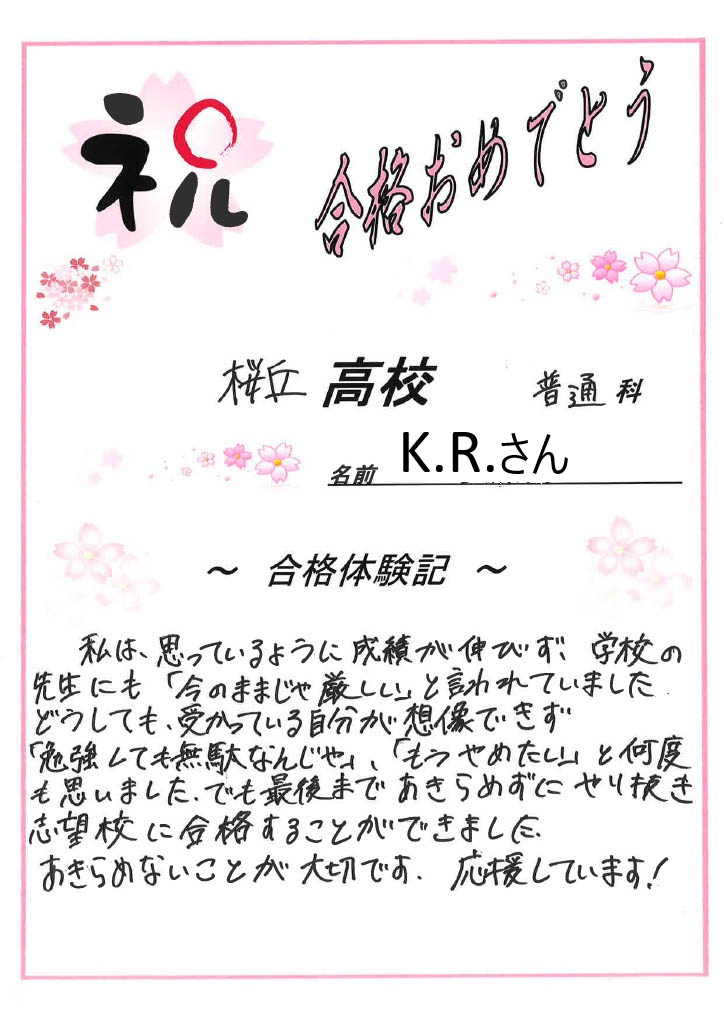 祝
合格おめでとう
桜丘 高校 普通 科
名前 K.R.さん
～ 合格体験記 ～
私は、思っているように成績が伸びず、学校の
先生にも「今のままじゃ厳しい」と言われていました
どうしても、受かっている自分が想像できず
「勉強しても無駄なんじゃ」、「もうやめたい」と何度
も思いました。でも最後まであきらめずにやり抜き
志望校に合格することができました。
あきらめないことが大切です。応援しています!